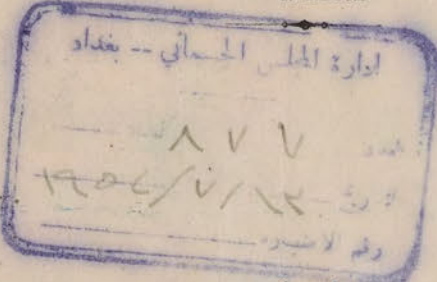 ادارة المجلس الجسماني -- بغداد
العدد ٨٧٧
التاريخ ١٣/٧/١٩٥٤
رقم الاضبارة